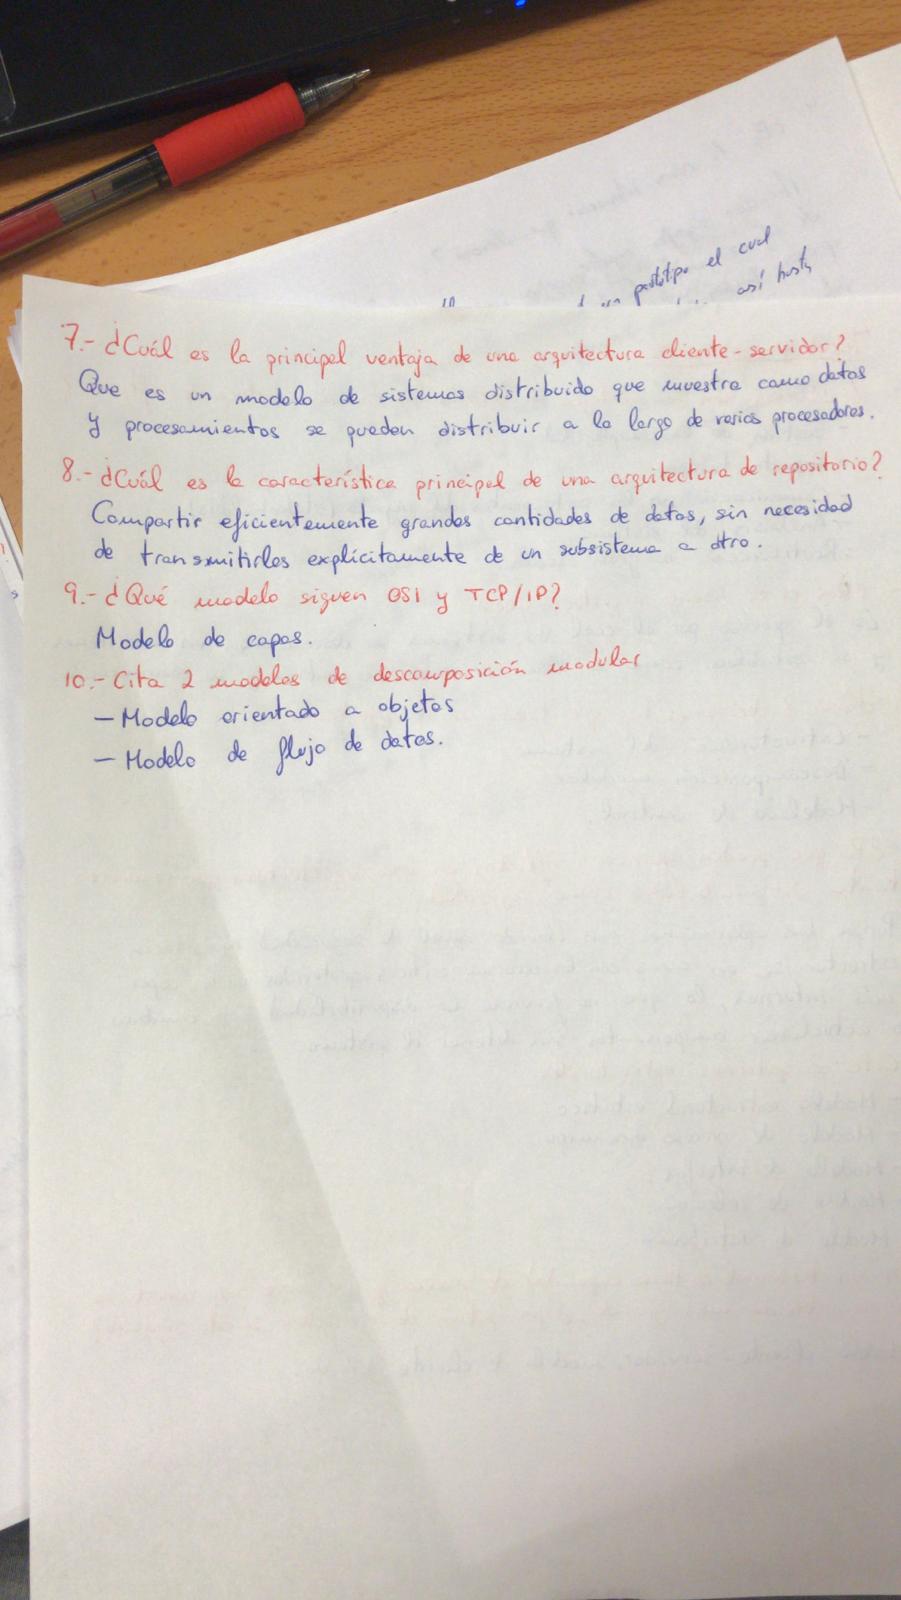 prototipo el cual
así hasta
7.- ¿Cuál es la principal ventaja de una arquitectura cliente-servidor?
Que es un modelo de sistemas distribuido que muestra como datos
y procesamientos se pueden distribuir a lo largo de varios procesadores.
8.- ¿Cuál es la característica principal de una arquitectura de repositorio?
Compartir eficientemente grandes cantidades de datos, sin necesidad
de transmitirles explícitamente de un subsistema a otro.
9.- ¿Qué modelo siguen OSI y TCP/IP?
Modelo de capas.
10.- Cita 2 modelos de descomposición modular
- Modelo orientado a objetos
- Modelo de flujo de datos.